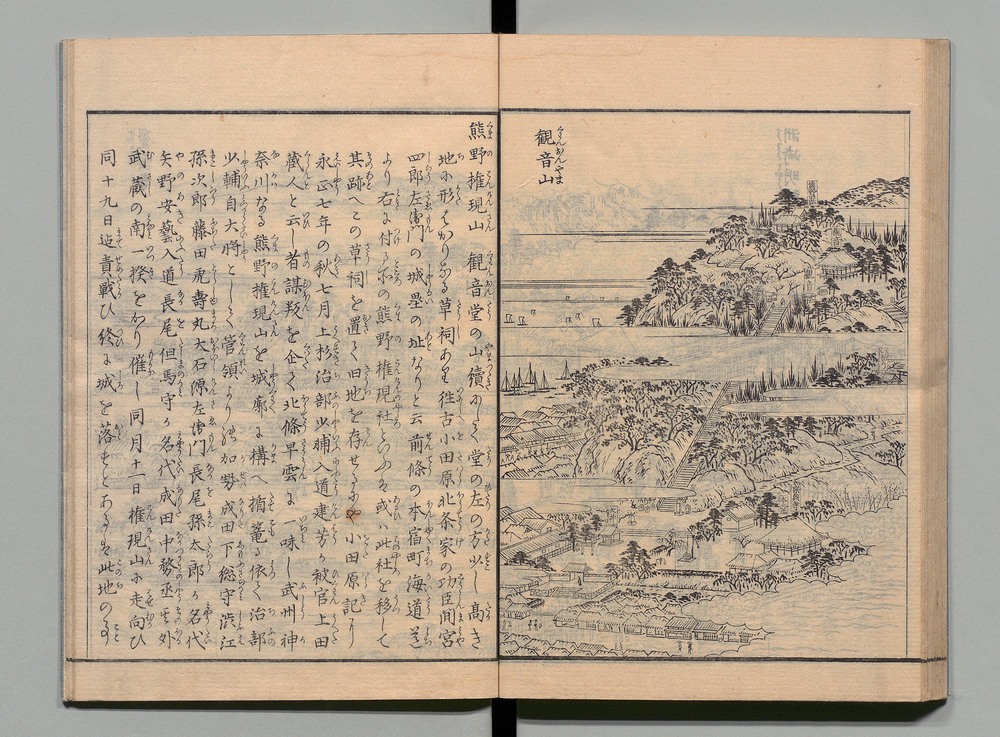 観音山
熊野権現山 観音堂の山續にして堂の左の方少し高き
地に形ばかりなる草祠あり往古小田原北条家の功臣間宮
四郎左衛門の城塁の址なりと云前條の本宿町海道
より右に付る所の熊野権現社といふを或ハ此社を移して
其跡へこの草祠を置て旧地を存せるにや小田原記に
永正七年の秋七月上杉治部少輔入道建芳が被官上田
蔵人と云し者謀叛を企て北條早雲に一味し武州神
奈川なる熊野権現山を城廓に構へ楯篭る依て治部
少輔自大将として管領より加勢成田下総守渋江
孫次郎藤田虎壽丸大石源左衛門長尾孫太郎が名代
矢野安藝入道長尾但馬守が名代成田中務丞其外
武蔵の南一揆をかり催し同月十一日権現山に走向ひ
同十九日迄責戦ひ終に城を落とあるも此地の